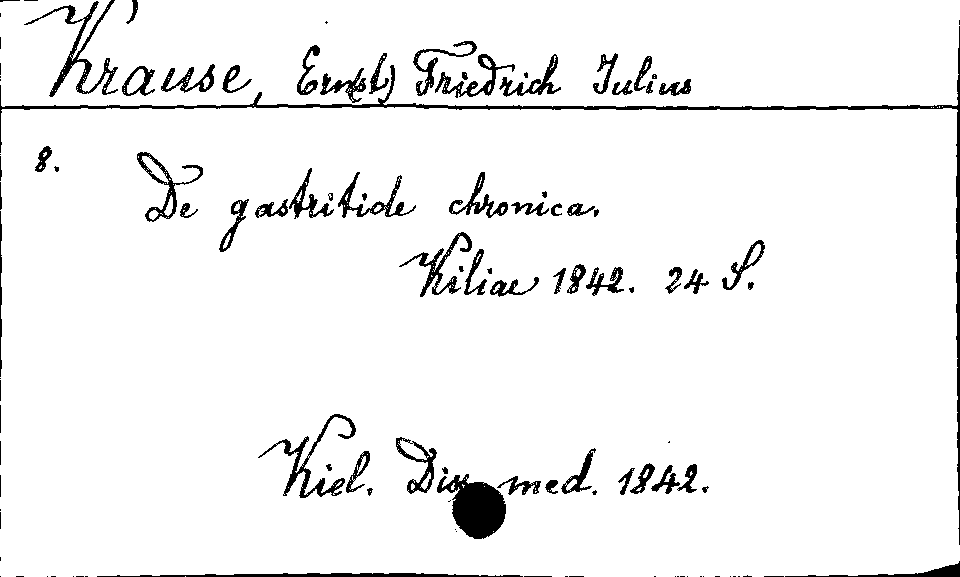 Krause, Ern(st) Friedrich Julius
8.
De gastritide chronica.
Kiliae 1842. 24 S.
Kiel. Diss med. 1842.